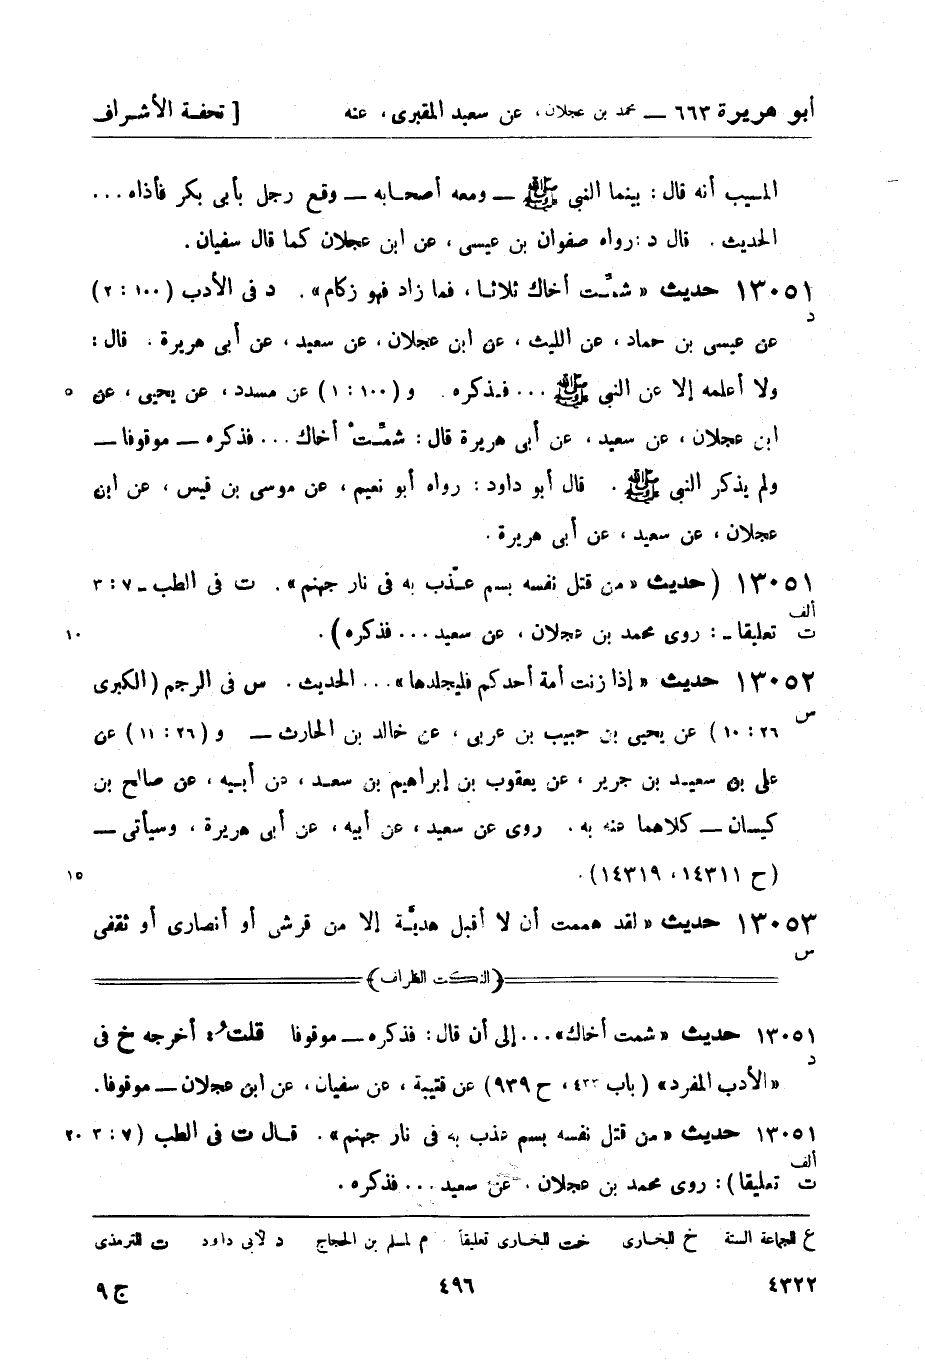 أبو هريرة ٦٦٣ — محمد بن عجلان، عن سعيد المقبرى، عنه [ تحفة الأشراف
المسيب أنه قال: بينما النبى ﷺ — ومعه أصحابه — وقع رجل بأبى بكر فأذاه...
الحديث. قال د: رواه صفوان بن عيسى، عن ابن عجلان كما قال سفيان.
١٣٠٥١ حديث «شمّت أخاك ثلاثا، فما زاد فهو زكام». د فى الأدب (١٠٠: ٢)
د
عن عيسى بن حماد، عن الليث، عن ابن عجلان، عن سعيد، عن أبى هريرة. قال:
ولا أعلمه إلا عن النبى ﷺ ... فذكره. و (١٠٠: ١) عن مسدد، عن يحيى، عن ٥
ابن عجلان، عن سعيد، عن أبى هريرة قال: شمّتْ أخاك... فذكره — موقوفا —
ولم يذكر النبى ﷺ. قال أبو داود: رواه أبو نعيم، عن موسى بن قيس، عن ابن
عجلان، عن سعيد، عن أبى هريرة.
١٣٠٥١ (حديث «من قتل نفسه بسم عذّب به فى نار جهنم». ت فى الطب - ٧: ٣
ألف
ت تعليقا -: روى محمد بن عجلان، عن سعيد... فذكره). ١٠
١٣٠٥٢ حديث «إذا زنت أمة أحدكم فليجلدها»... الحديث. س فى الرجم (الكبرى
س
٢٦: ١٠) عن يحيى بن حبيب بن عربى، عن خالد بن الحارث — و (٢٦: ١١) عن
على بن سعيد بن جرير، عن يعقوب بن إبراهيم بن سعد، عن أبيه، عن صالح بن
كيسان — كلاهما عنه به. روى عن سعيد، عن أبيه، عن أبى هريرة، وسيأتى —
(ح ١٤٣١١، ١٤٣١٩). ١٥
١٣٠٥٣ حديث «لقد هممت أن لا أقبل هديّة إلا من قرشى أو أنصارى أو ثقفى
س
(النكت الظراف)
١٣٠٥١ حديث «شمت أخاك»... إلى أن قال: فذكره — موقوفا قلتُ: أخرجه خ فى
د
«الأدب المفرد» (باب ٤٣٢، ح ٩٣٩) عن قتيبة، عن سفيان، عن ابن عجلان — موقوفا.
١٣٠٥١ حديث «من قتل نفسه بسم عذب به فى نار جهنم». قال ت فى الطب (٧: ٣ ٢٠
ألف
ت تعليقا): روى محمد بن عجلان. عن سعيد... فذكره.
ع للجماعة الستة خ للبخارى خت للبخارى تعليقاً م لمسلم بن الحجاج د لأبى داود ت للترمذى
٤٣٢٢ ٤٩٦ ج ٩